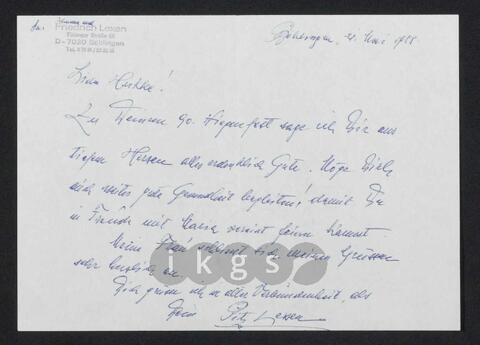 Friedrich Lexen
D - 7030 Böblingen
Böblingen, 21. Mai 1988
Lieber Heinke!
Zu Deinem 90. Wiegenfest sage ich Dir aus
tiefem Herzen alles erdenklich Gute. Möge Dich
auch weiter gute Gesundheit begleiten, damit Du
in Freude mit Maria vereint feiern kannst.
Meine Frau schliesst sich meinen Grüssen
sehr herzlich an.
Dich grüsse ich in alter Verbundenheit, als
Dein Fritz Lexen
ikgs